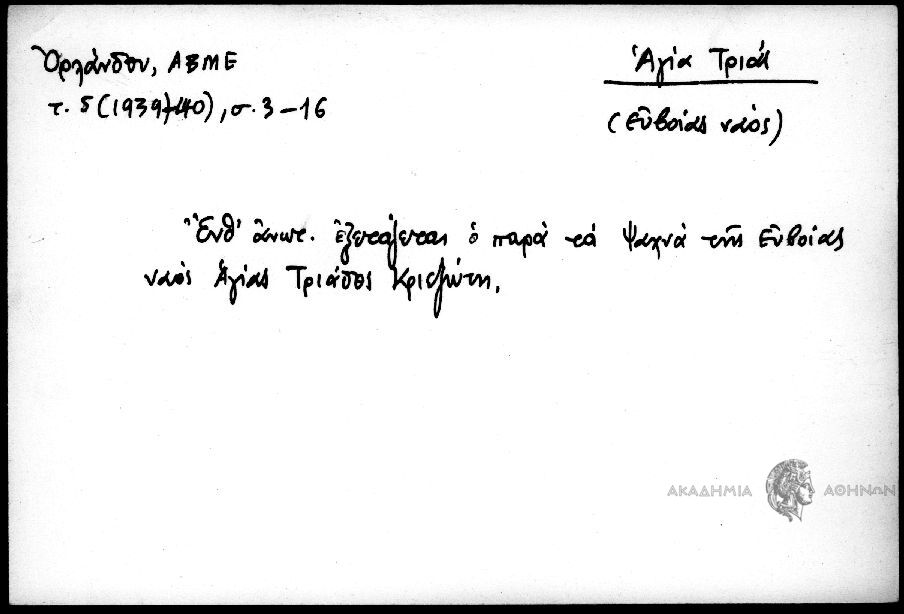 Ὀρλάνδου, ΑΒΜΕ
τ. 5 (1939/40), σ. 3-16
Ἁγία Τριάς
(Εὐβοίας ναός)
Ἔνθ' ἀνωτ. ἐξετάζεται ὁ παρὰ τὰ Ψαχνὰ τῆς Εὐβοίας
ναὸς Ἁγίας Τριάδος Κριεζώτη.
ΑΚΑΔΗΜΙΑ ΑΘΗΝΩΝ